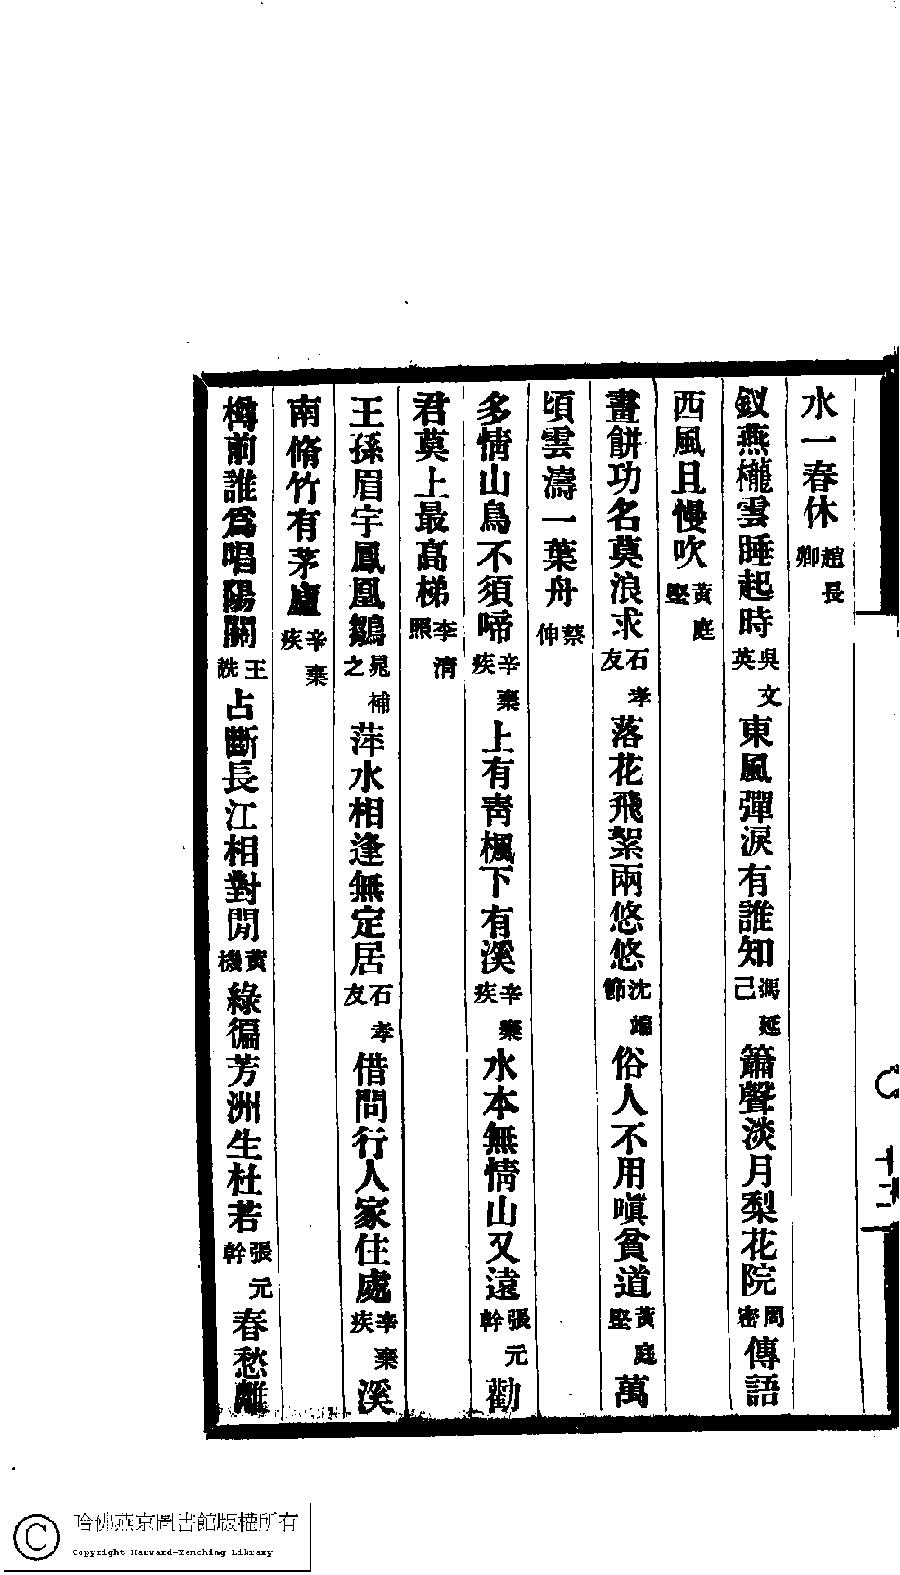 水一春休趙長卿
釵燕櫳雲睡起時吳文英東風彈淚有誰知馮延己簫聲淡月梨花院周密傳語
西風且慢吹黃庭堅
畫餅功名莫浪求石孝友落花飛絮兩悠悠沈端節俗人不用嗔貧道黃庭堅萬
頃雲濤一葉舟蔡伸
多情山鳥不須啼辛棄疾上有靑楓下有溪辛棄疾水本無情山又遠張元幹勸
君莫上最高梯李淸照
王孫眉宇鳳凰雛晁補之萍水相逢無定居石孝友借問行人家住處辛棄疾溪
南脩竹有茅廬辛棄疾
樽前誰爲唱陽關王詵占斷長江相對閒黃機綠徧芳洲生杜若張元幹春愁離
十二
哈佛燕京圖書館版權所有
Copyright Harvard-Yenching Library